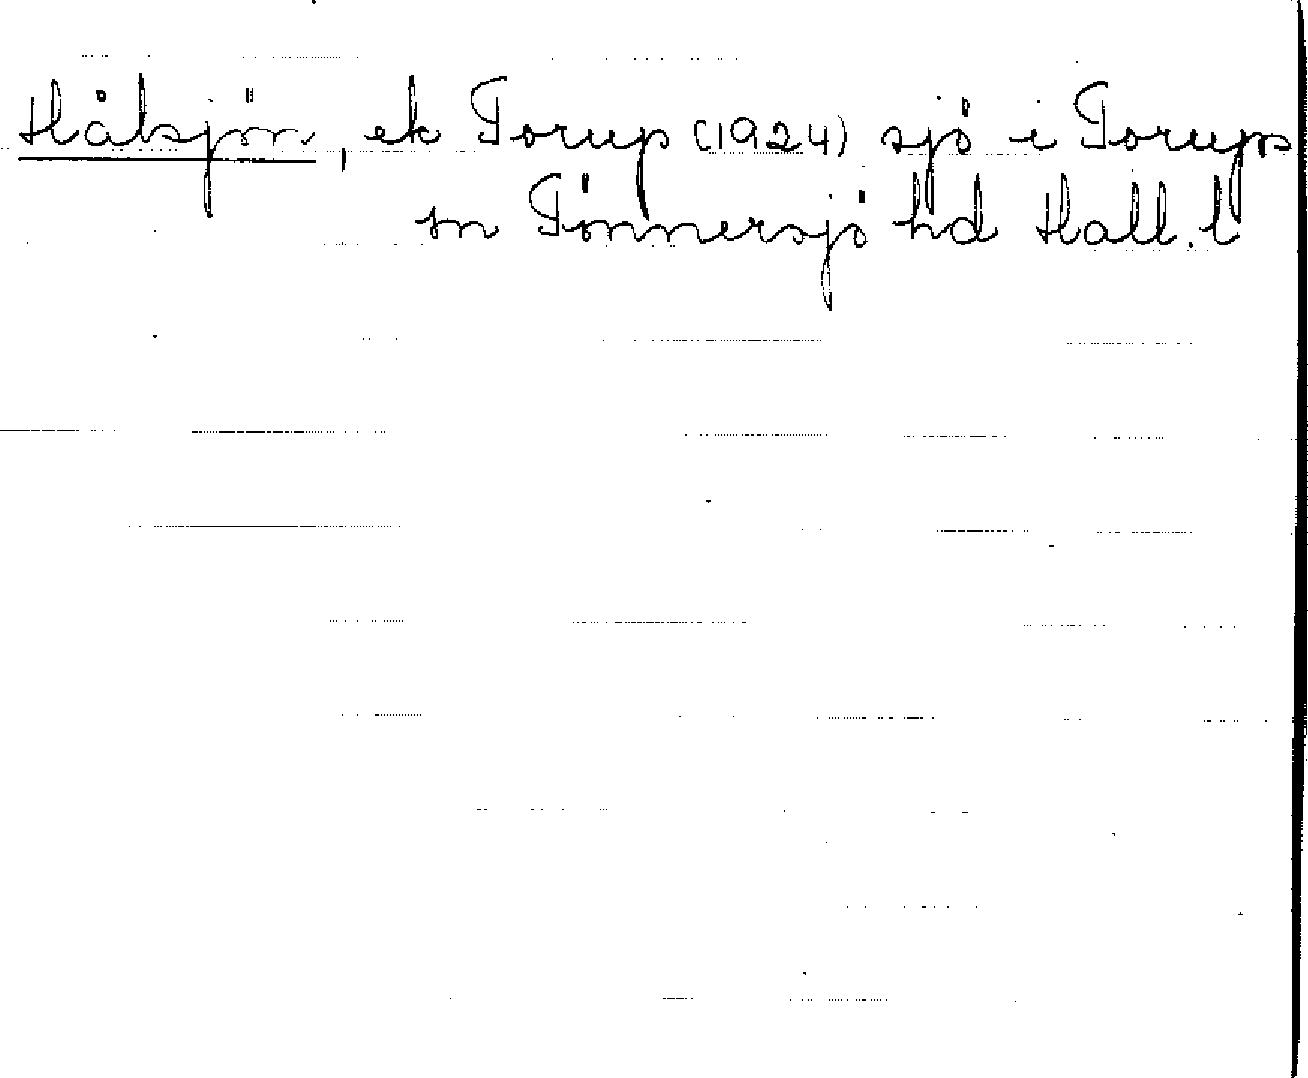 Håksjön, ek Torup (1924) sjö i Torups
sn Tönnersjö hd Hall. l